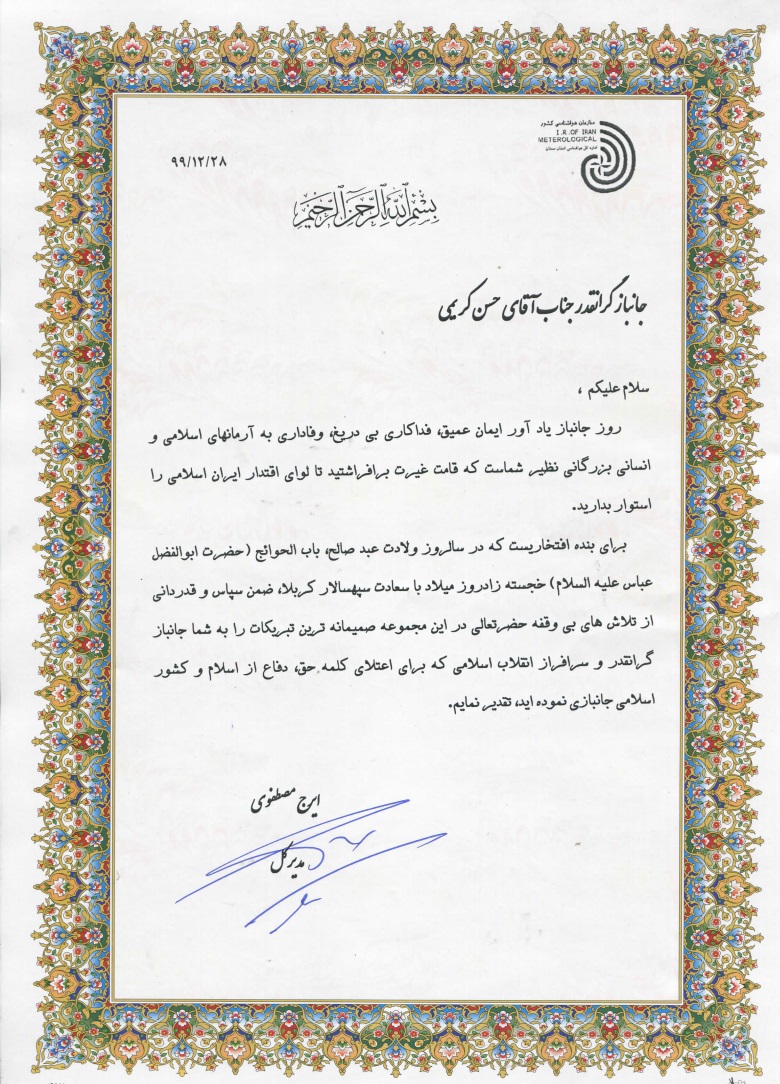 سازمان هواشناسی کشور
I.R.OF IRAN
METEROLOGICAL
اداره کل هواشناسی استان سمنان
۹۹/۱۲/۲۸
بسم الله الرحمن الرحیم
جانباز گرانقدر جناب آقای حسن کریمی
سلام علیکم ،
روز جانباز یاد آور ایمان عمیق، فداکاری بی دریغ، وفاداری به آرمانهای اسلامی و
انسانی بزرگانی نظیر شماست که قامت غیرت برافراشتید تا لوای اقتدار ایران اسلامی را
استوار بدارید.
برای بنده افتخاریست که در سالروز ولادت عبد صالح، باب الحوائج (حضرت ابوالفضل
عباس علیه السلام) خجسته زادروز میلاد با سعادت سپهسالار کربلا، ضمن سپاس و قدردانی
از تلاش های بی وقفه حضرتعالی در این مجموعه صمیمانه ترین تبریکات را به شما جانباز
گرانقدر و سرافراز انقلاب اسلامی که برای اعتلای کلمه حق، دفاع از اسلام و کشور
اسلامی جانبازی نموده اید، تقدیر نمایم.
ایرج مصطفوی
مدیرکل